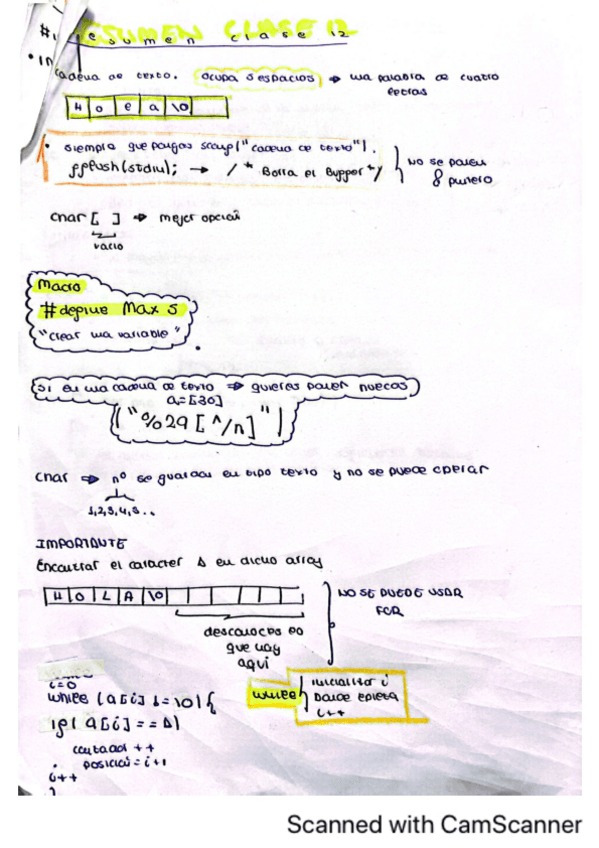 RESUMEN CLASE 12
cadena de texto. ocupa 5 espacios → una palabra de cuatro letras
H o l a \0
• siempre que pongas scanf("cadena de texto").
fflush(stdin); → /* Borra el Buffer */
NO se ponen
& puntero
char [ ] → mejor opción
vacio
Macro
#define Max 5
"crear una variable"
Si en una cadena de texto → quieres poner huecos
a=[30]
("%29[^/n]")
char → nº se guardan en tipo texto y no se puede operar
1,2,3,4,5..
IMPORTANTE
Encontrar el caracter A en dicho array
H O L A \0
NO SE PUEDE USAR
FOR
desconoces lo
que hay
aqui
i=0
while (a[i] != \0) {
if( a[i] == A)
contador ++
posicion = i+1
i++
}
while
inicializar i
Donde empieza
i++
Scanned with CamScanner